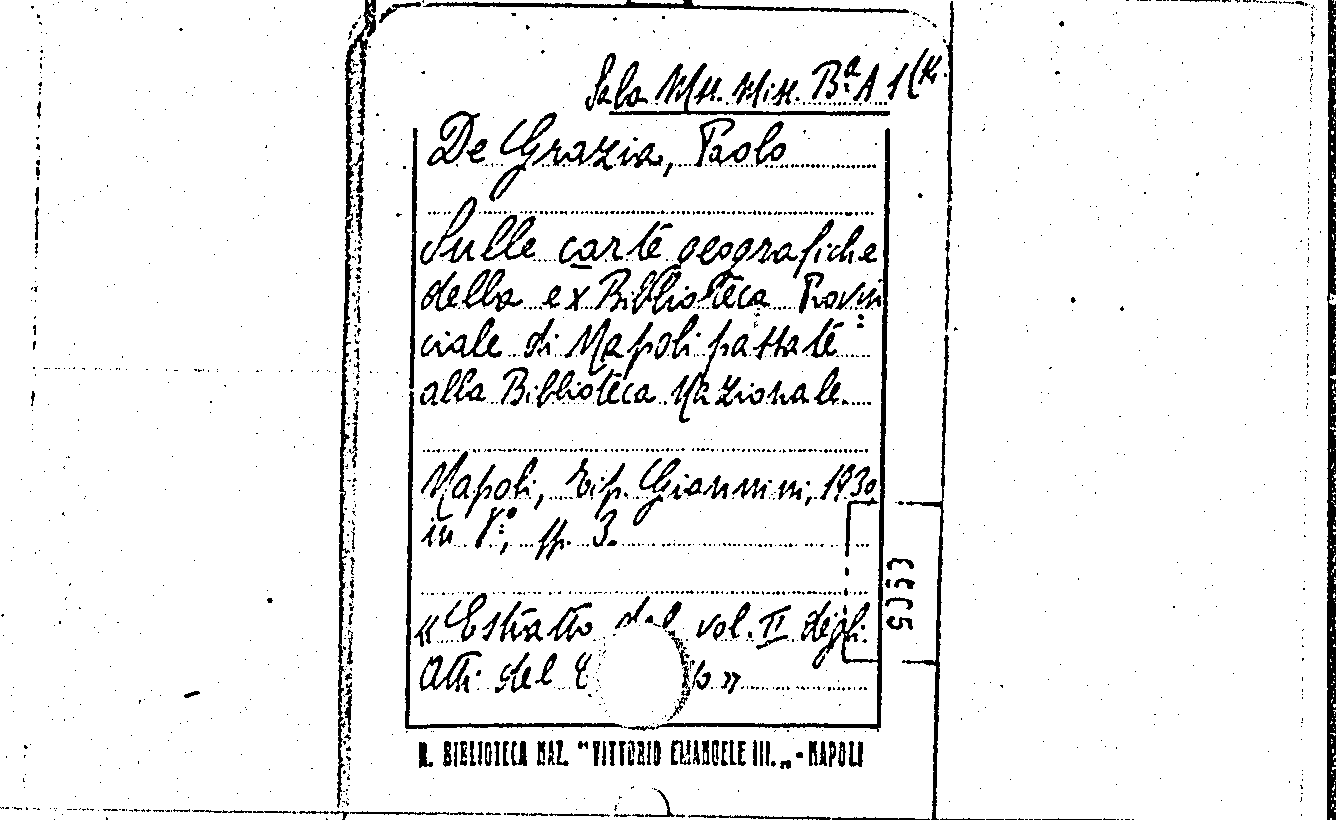 Sala Mss. Misc. Bª A 1 (
De Grazia, Paolo
Sulle carte geografiche
della ex Biblioteca Provin
ciale di Napoli passate
alla Biblioteca Nazionale.
Napoli, Tip. Giannini, 1930
in 8°, pp. 3.
« Estratto dal vol. II degli
Atti del
R. BIBLIOTECA NAZ. "VITTORIO EMANUELE III. „ - NAPOLI